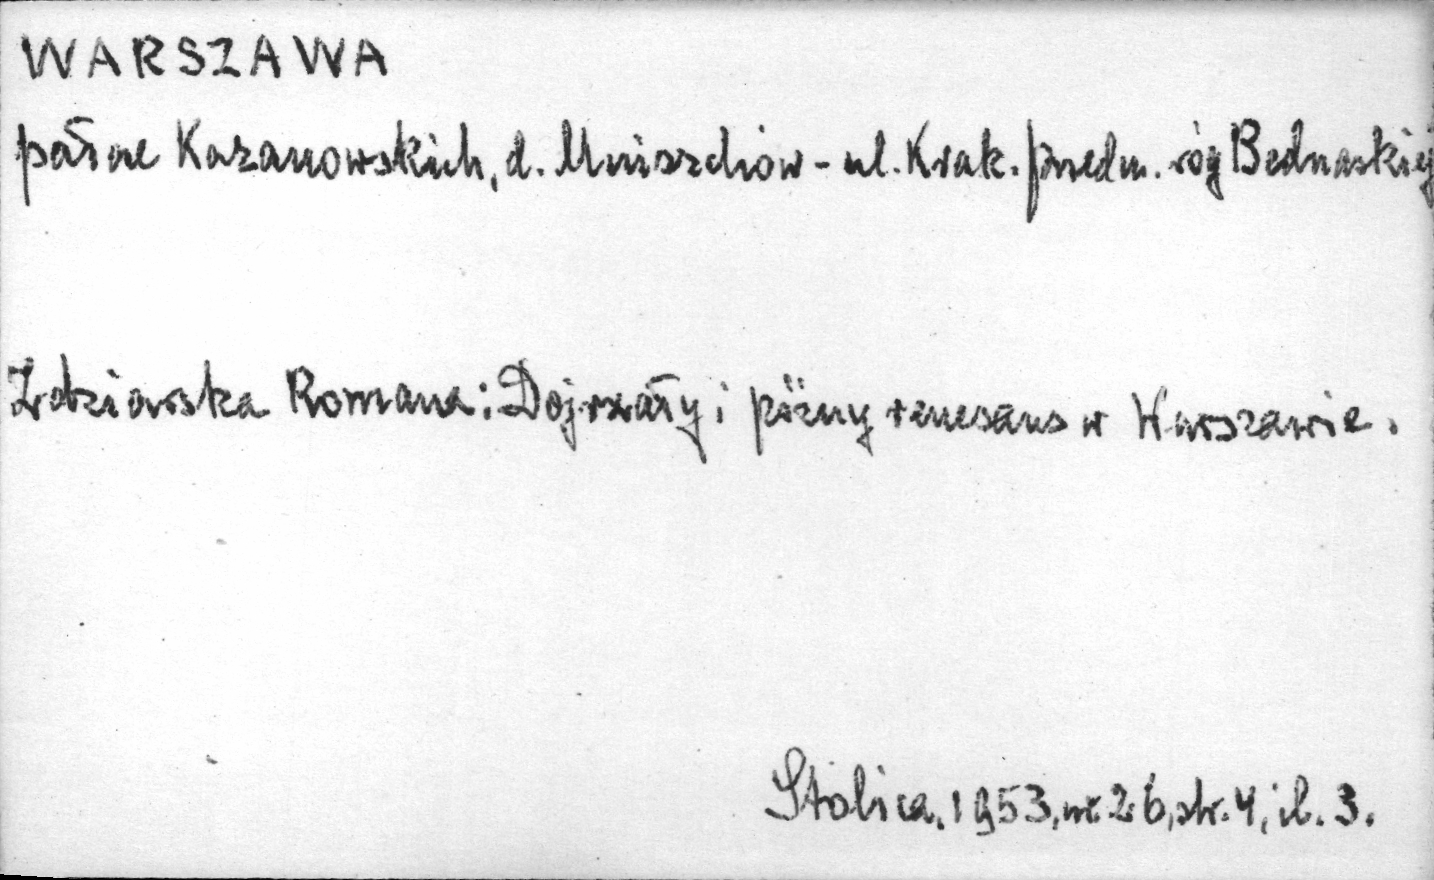 WARSZAWA
pałac Kazanowskich, d. Mniszchów - ul. Krak. przedm. róg Bednarskiej
Zdziarska Romana: Dojrzały i późny renesans w Warszawie.
Stolica, 1953, nr. 26, str. 4, il. 3.